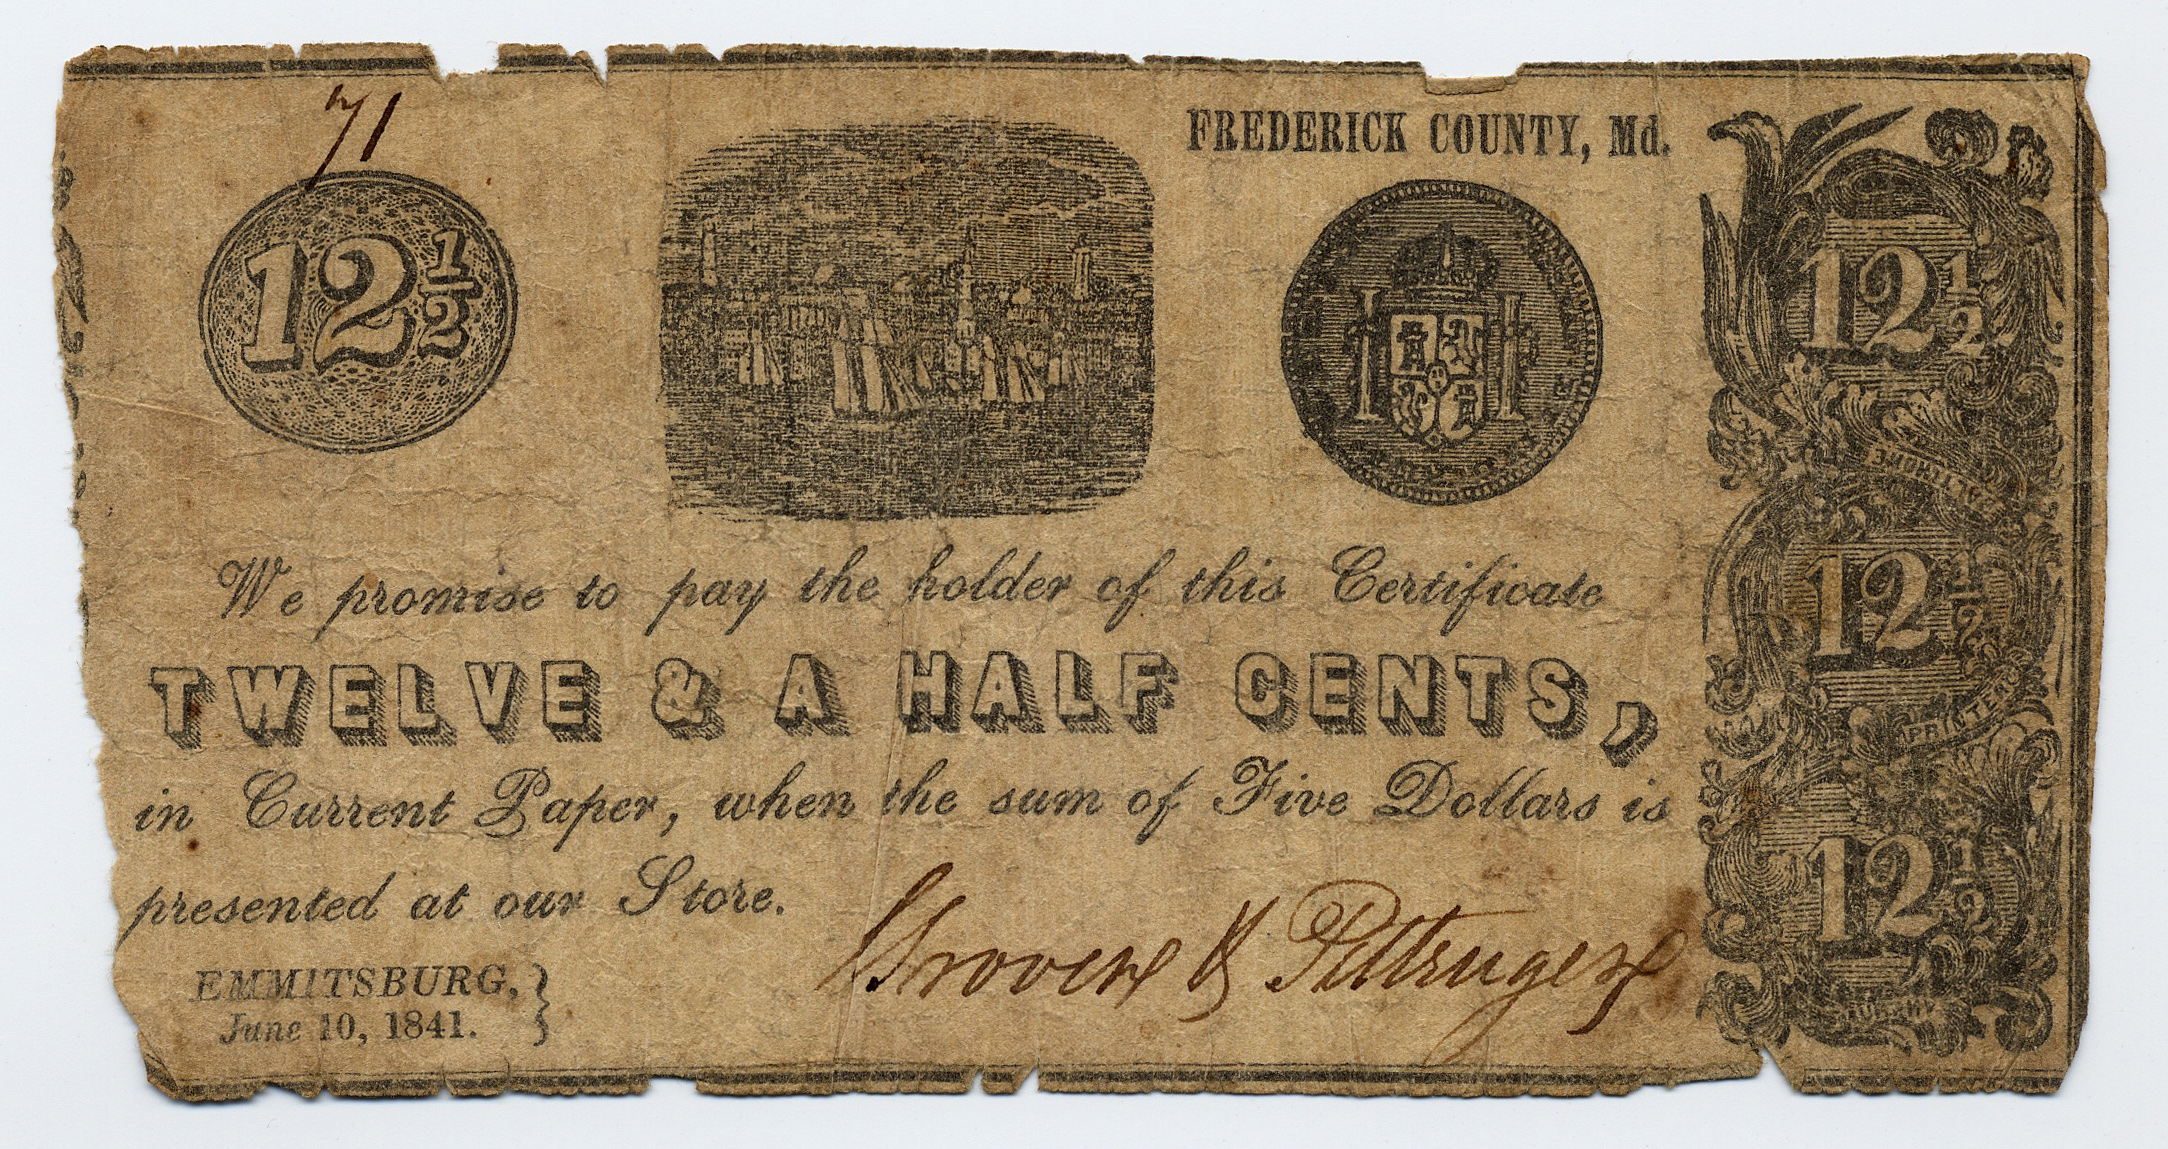 71
FREDERICK COUNTY, Md.
12 1/2
12 1/2
We promise to pay the holder of this Certificate
TWELVE & A HALF CENTS,
in Current Paper, when the sum of Five Dollars is
presented at our Store.
EMMITSBURG,
June 10, 1841.
BALTIMORE
12 1/2
PRINTERS
12 1/2
MURPHY